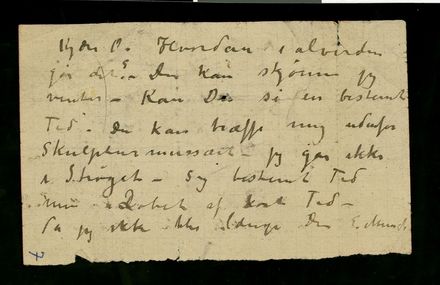 Kjære D. Hvordan i alverden
går det? Du kan skjønne jeg
venter – Kan Du si en bestemt
Tid – Du kan træffe mig udenfor
Skulpturmuseet – jeg går ikke
i Strøget – Sig bestemt Tid
Løbet af kort Tid –
Da jeg ikke længe Din E. Munch